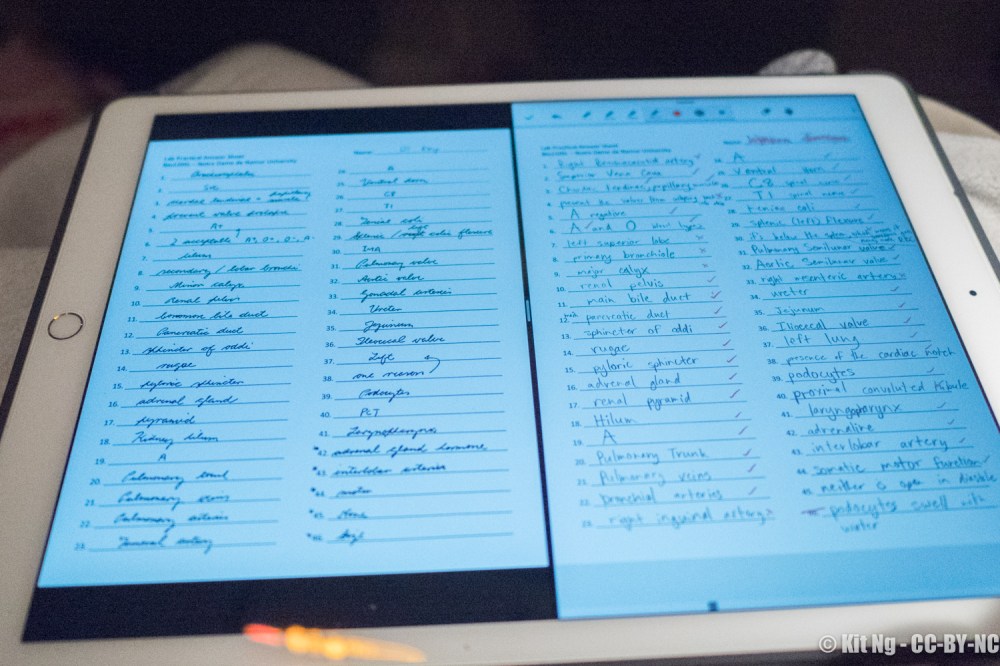 Lab Practical Answer Sheet
Notre Dame de Namur University
Name: Key
1. Brachiocephalic
2. SVC
3.
4. prevent valve prolapse
5. A+
6. 2 acceptable A+, O+, O-, A-
7. hilum
8. secondary / lobar bronchi
9. Minor calyx
10. Renal pelvis
11. Common bile duct
12. Pancreatic duct
13. sphincter of oddi
14. rugae
15. pyloric sphincter
16. adrenal gland
17. pyramid
18. Kidney hilum
19. A
20. Pulmonary trunk
21. Pulmonary veins
22.
23. Femoral artery
24. A
25. Ventral horn
26. C8
27. T1
28. Taeniae coli
29. Splenic / left colic flexure
30. IMA
31. Pulmonary valve
32. Aortic valve
33. Gonadal arteries
34. Ureter
35. Jejunum
36. Ileocecal valve
37. Left
38. one reason
39. Podocytes
40. PCT
41. Laryngopharynx
*42. adrenal gland hormone
*43. interlobar arteries
*44. motor
*45. None
*46.
Lab Practical Answer Sheet
Notre Dame de Namur University
Name:
1. Right Brachiocephalic artery
2. Superior Vena Cava
3. Chordae tendineae, papillary muscle
4. prevent the valve from
5. A negative
6. A and O
7. left superior lobe
8. primary bronchiole
9. major calyx
10. renal pelvis
11. main bile duct
12. pancreatic duct
13. sphincter of addi
14. rugae
15. pyloric sphincter
16. adrenal gland
17. renal pyramid
18. Hilum
19. A
20. Pulmonary Trunk
21. Pulmonary veins
22. bronchial arteries
23. right inguinal artery
24. A
25. Ventral horn
26. C8 spinal nerve
27. T1 spinal nerve
28. taniae coli
29. splenic (left) Flexure
30. it's below the spleen
31. Pulmonary Semilunar valve
32. Aortic Semilunar valve
33. right mesenteric artery
34. ureter
35. Jejunum
36. Illeocecal valve
37. left lung
38. presence of the cardiac notch
39. podocytes
40. proximal convoluted tubule
41. laryngopharynx
42. adrenaline
43. interlobar artery
44. somatic motor function
45. neither is open in diastole
podocytes swell with
water
© Kit Ng - CC-BY-NC